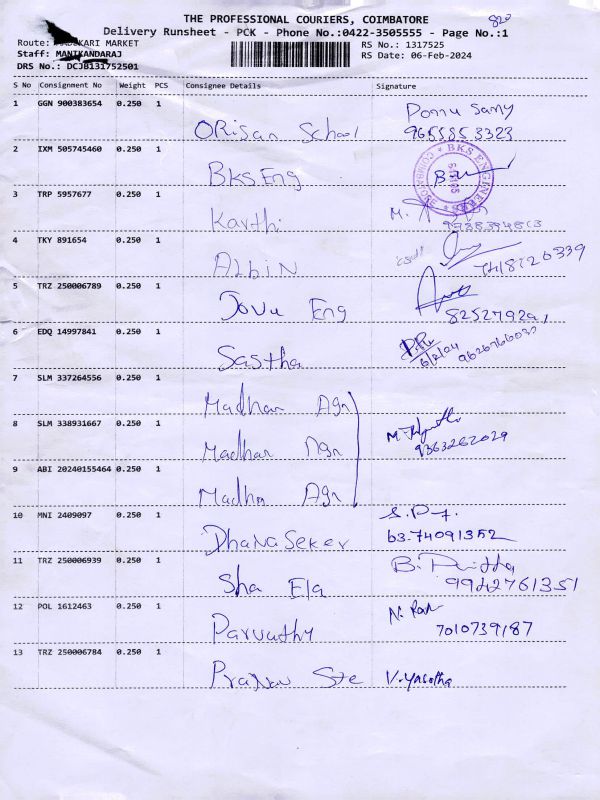 THE PROFESSIONAL COURIERS, COIMBATORE
820
Delivery Runsheet - PCK - Phone No.:0422-3505555 - Page No.:1
Route: KARI MARKET
RS No.: 1317525
Staff: MANIKANDARAJ
RS Date: 06-Feb-2024
DRS No.: DCJB131752501
S No Consignment No Weight PCS Consignee Details Signature
1 GGN 900383654 0.250 1 ORisan School Ponnu Samy
9655853323
2 IXM 505745460 0.250 1 BKS Eng
BKS ENGINEERS COIMBATORE
3 TRP 5957677 0.250 1 Karthi M.
4 TKY 891654 0.250 1 AlbiN
5 TRZ 250006789 0.250 1 Jovu Eng
6 EDQ 14997841 0.250 1 Sastha
6/2/24
7 SLM 337264556 0.250 1 Madhan Agn
8 SLM 338931667 0.250 1 Madhan Agn
9363262029
9 ABI 20240155464 0.250 1 Madha Agn
10 MNI 2409097 0.250 1 DhanaSeker
63.74091352
11 TRZ 250006939 0.250 1 Sha Ela B.
9942761351
12 POL 1612463 0.250 1 Parvathy N.
7010739187
13 TRZ 250006784 0.250 1 PraNav Ste V.yasotha